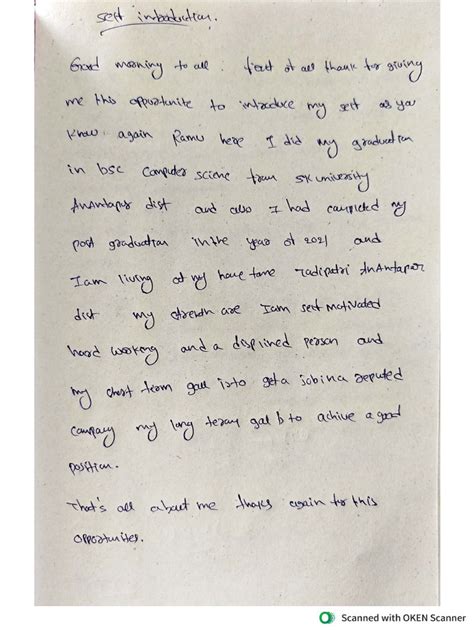 self introduction.
Good morning to all. first of all thank for giving
me this opportunite to introduce my self as you
know again Ramu here I did my graduation
in bsc computer sciene from SK university
Anantapur dist and also I had completed my
post graduation in the year of 2021 and
I am living at my home tame Tadipatri AnAntapur
dist my strendh are I am self motivated
hard working and a displined person and
my short term gall is to get a job in a reputed
company my long teram gal b to achive a good
position.
That's all about me thaks again for this
opportunites.
Scanned with OKEN Scanner